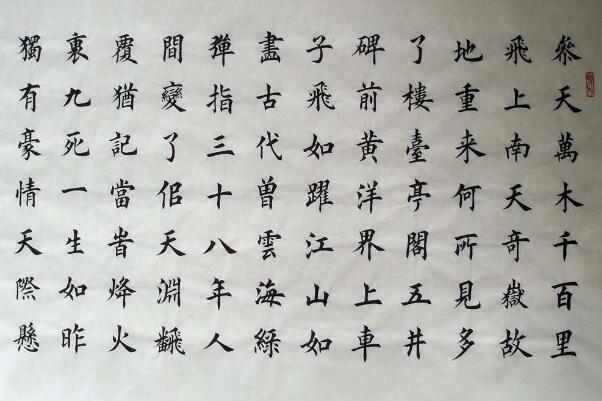 叅天萬木千百里
飛上南天奇嶽故
地重来何所見多
了樓臺亭閣五井
碑前黄洋界上車
子飛如躍江山如
畫古代曽雲海綠
彈指三十八年人
間變了佀天淵飜
覆猶記當旹烽火
裏九死一生如昨
獨有豪情天際懸